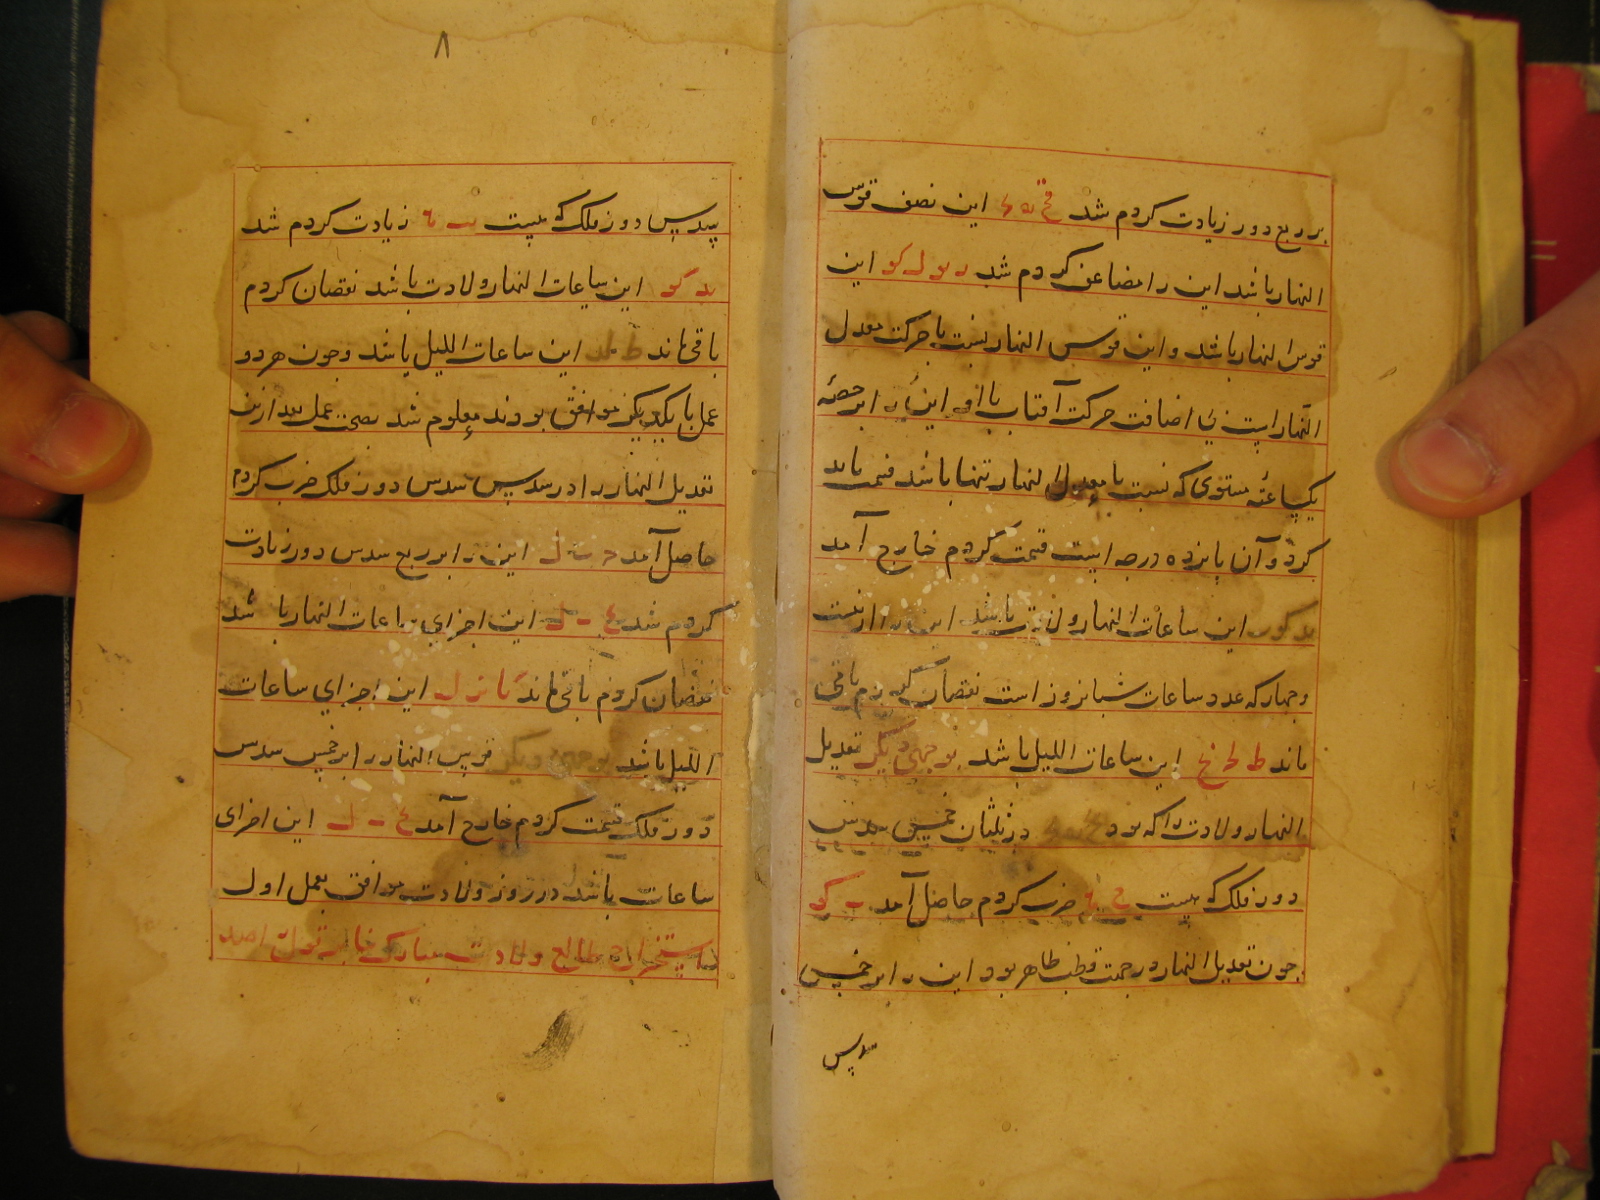 بر ربع دور زیادت کردم شد قح ں ح این نصف قوس
النهار باشد این را مضاعف کردم شد ریو ل کو این
قوس النهار باشد و این قوس النهار نسبت با حرکت معدل
النهار است بی اضافت حرکت آفتاب با او این را بر حصّه
یکساعته مستوی که نسبت با معدل النهار تنها باشد قسمت باید
کرد و آن پانزده درجه است قسمت کردم خارج آمد
ید کو این ساعات النهار ولادت باشد این را از بیست
و چهار که عدد ساعات شبانروز است نقصان کردم باقی
ماند ط لح این ساعات اللیل باشد بوجهی دیگر تعدیل
النهار ولادت را که بود در ثلثان خمس سدس
دور فلک که بیست ح ٦ ضرب کردم حاصل آمد ب کو
چون تعدیل النهار در جهت قطب ظاهر بود این را بر خمس
سدس
٨
سدس دور فلک که بیست ٮ ٦ زیادت کردم شد
ید کو این ساعات النهار ولادت باشد نقصان کردم
باقی ماند ط لد این ساعات اللیل باشد و چون هر دو
عمل با یکدیگر موافق بودند معلوم شد صحت عمل بعد ازین
تعدیل النهار را در سدس سدس دور فلک ضرب کردم
حاصل آمد این را بر ربع سدس دور زیادت
کردم شد این اجزای ساعات النهار باشد
نقصان کردم باقی ماند یا نز ل این اجزای ساعات
اللیل باشد بوجهی دیگر قوس النهار را بر خمس سدس
دور فلک قسمت کردم خارج آمد این اجزای
ساعات باشد در روز ولادت موافق بعمل اول
استخراج طالع ولادت مبارک